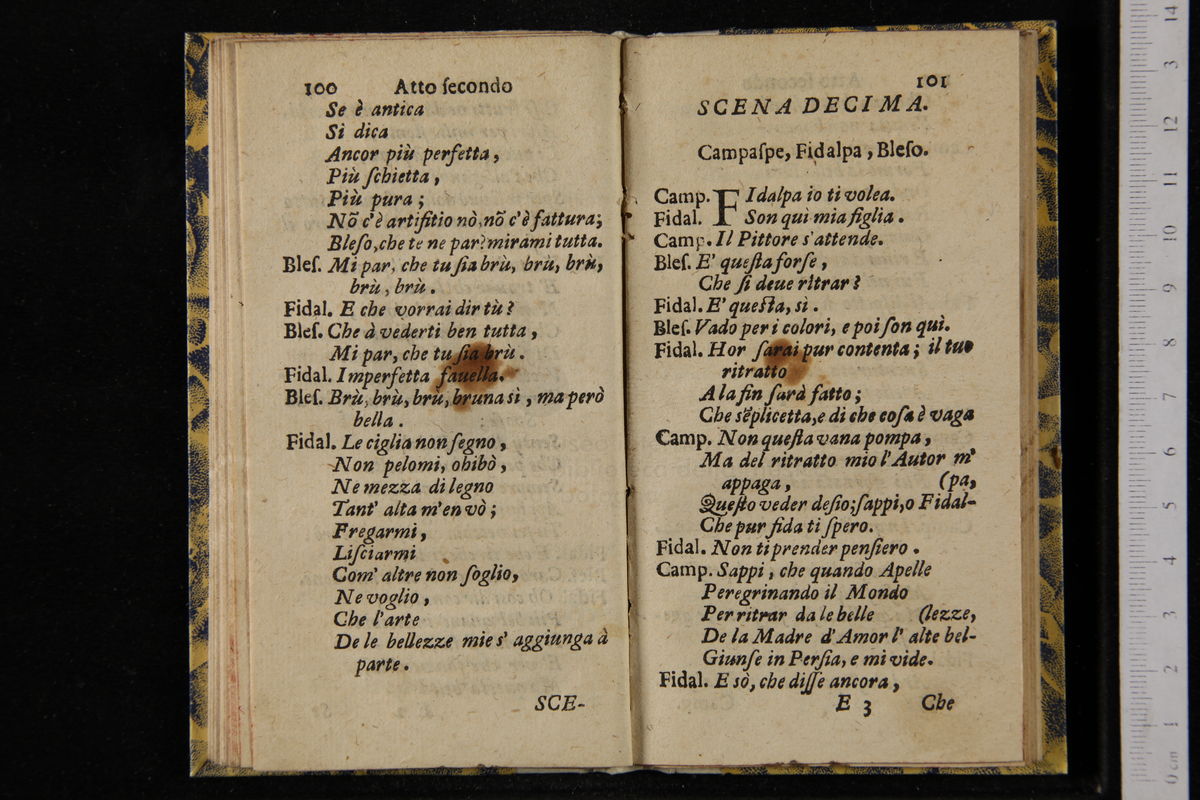 100 Atto ſecondo
Se è antica
Si dica
Ancor più perfetta,
Più ſchietta,
Più pura;
Nõ c'è artifitio nò, nõ c'è fattura;
Bleſo, che te ne par? mirami tutta.
Bleſ. Mi par, che tu ſia brù, brù, brù,
brù, brù.
Fidal. E che vorrai dir tù?
Bleſ. Che à vederti ben tutta,
Mi par, che tu ſia brù.
Fidal. Imperfetta fauella.
Bleſ. Brù, brù, brù, bruna sì, ma però
bella.
Fidal. Le ciglia non ſegno,
Non pelomi, ohibò,
Ne mezza di legno
Tant' alta m'en vò;
Fregarmi,
Liſciarmi
Com' altre non ſoglio,
Ne voglio,
Che l'arte
De le bellezze mie s' aggiunga à
parte.
SCE-
101
SCENA DECIMA.
Campaſpe, Fidalpa, Bleſo.
Camp. FIdalpa io ti volea.
Fidal. Son quì mia figlia.
Camp. Il Pittore s'attende.
Bleſ. E' queſta forſe,
Che ſi deue ritrar?
Fidal. E' queſta, sì.
Bleſ. Vado per i colori, e poi ſon quì.
Fidal. Hor ſarai pur contenta; il tuo
ritratto
A la fin ſarà fatto;
Che sẽplicetta, e di che coſa è vaga
Camp. Non queſta vana pompa,
Ma del ritratto mio l'Autor m'
appaga, (pa,
Queſto veder deſio; ſappi, o Fidal-
Che pur fida ti ſpero.
Fidal. Non ti prender penſiero.
Camp. Sappi, che quando Apelle
Peregrinando il Mondo
Per ritrar da le belle (lezze,
De la Madre d'Amor l' alte bel-
Giunſe in Perſia, e mi vide.
Fidal. E sò, che diſſe ancora,
E 3 Che